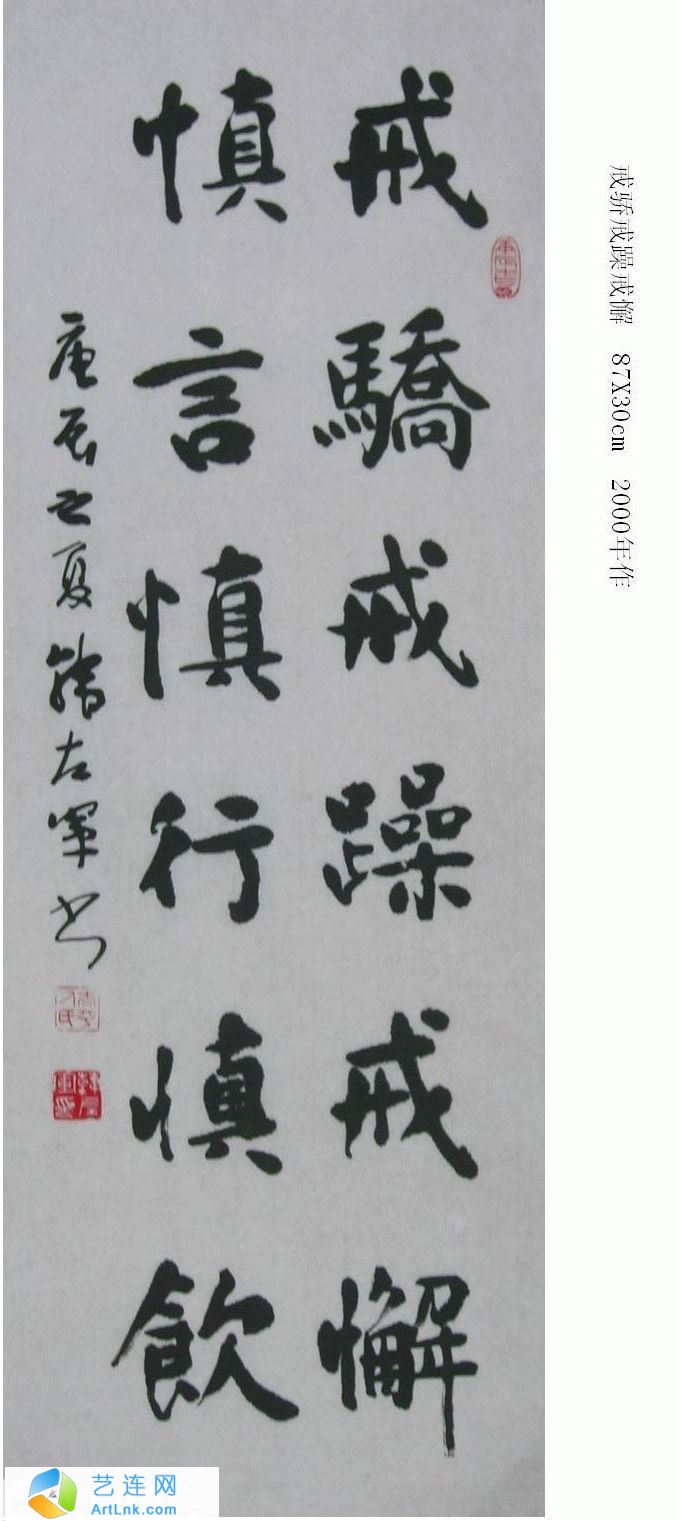 戒骄戒躁戒懈 87X30cm 2000年作
戒驕戒躁戒懈
慎言慎行慎飲
庚辰之夏韓左軍书
艺连网
ArtLnk.com